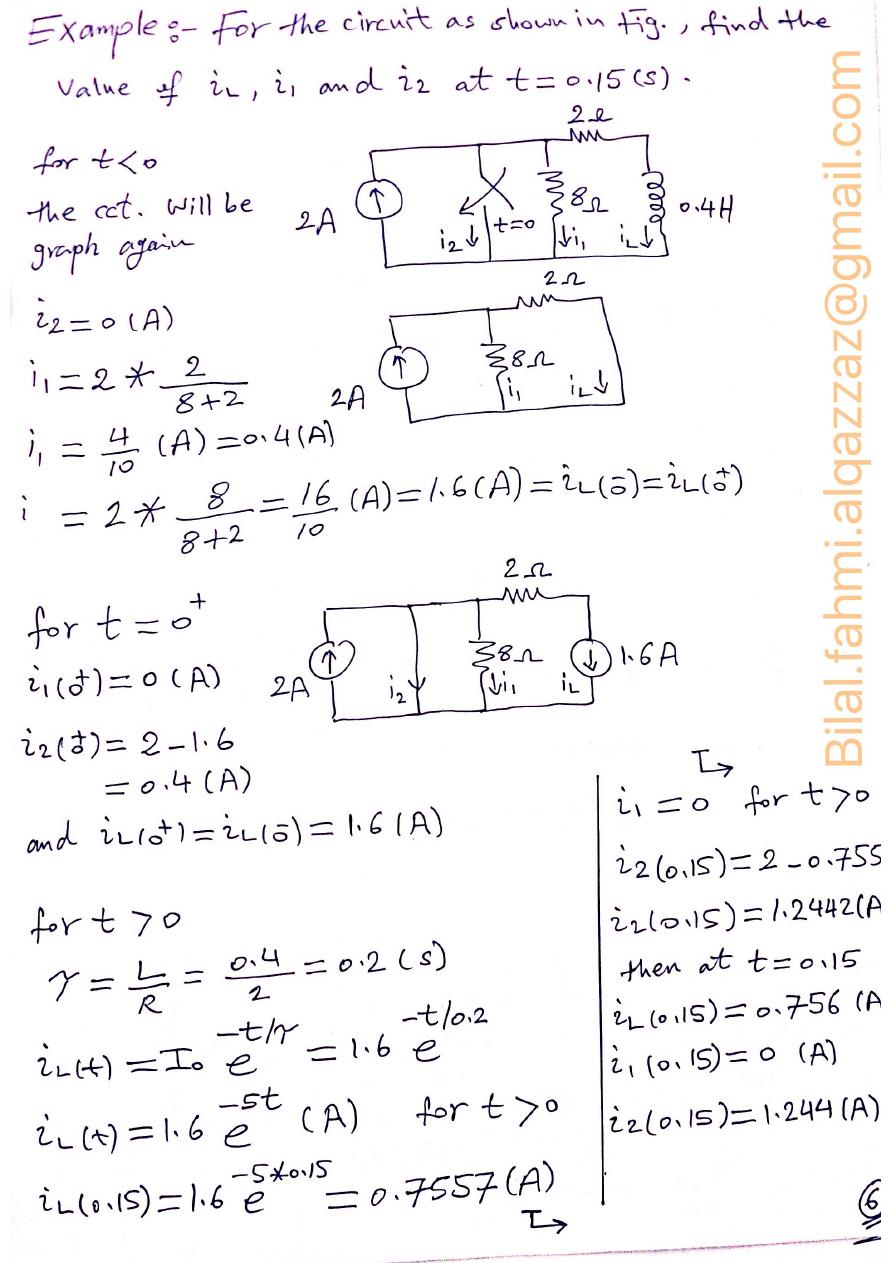 Example :- For the circuit as shown in Fig., find the
Value of iL, i1 and i2 at t=0.15(s).
for t<0
the cct. will be
graph again
2A
i2
t=0
8Ω
i1
iL
2Ω
0.4H
i2=0(A)
i1=2*2/(8+2)
i1=4/10 (A)=0.4(A)
2A
8Ω
i1
iL
2Ω
i =2*8/(8+2)=16/10 (A)=1.6(A)=iL(0⁻)=iL(0⁺)
for t=0⁺
i1(0⁺)=0(A)
i2(0⁺)=2-1.6
=0.4(A)
and iL(0⁺)=iL(0⁻)=1.6(A)
2A
i2
8Ω
i1
iL
2Ω
1.6A
for t>0
τ=L/R=0.4/2=0.2(s)
iL(t)=I₀ e^(-t/τ)=1.6 e^(-t/0.2)
iL(t)=1.6 e^(-5t) (A) for t>0
iL(0.15)=1.6 e^(-5*0.15)=0.7557(A)
I→
I→
i1=0 for t>0
i2(0.15)=2-0.755
i2(0.15)=1.2442(A
then at t=0.15
iL(0.15)=0.756 (A
i1(0.15)=0 (A)
i2(0.15)=1.244(A)
6
Bilal.fahmi.alqazzaz@gmail.com